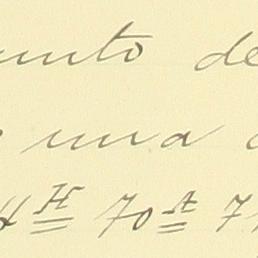 unto de
una
4 H 70 A 7